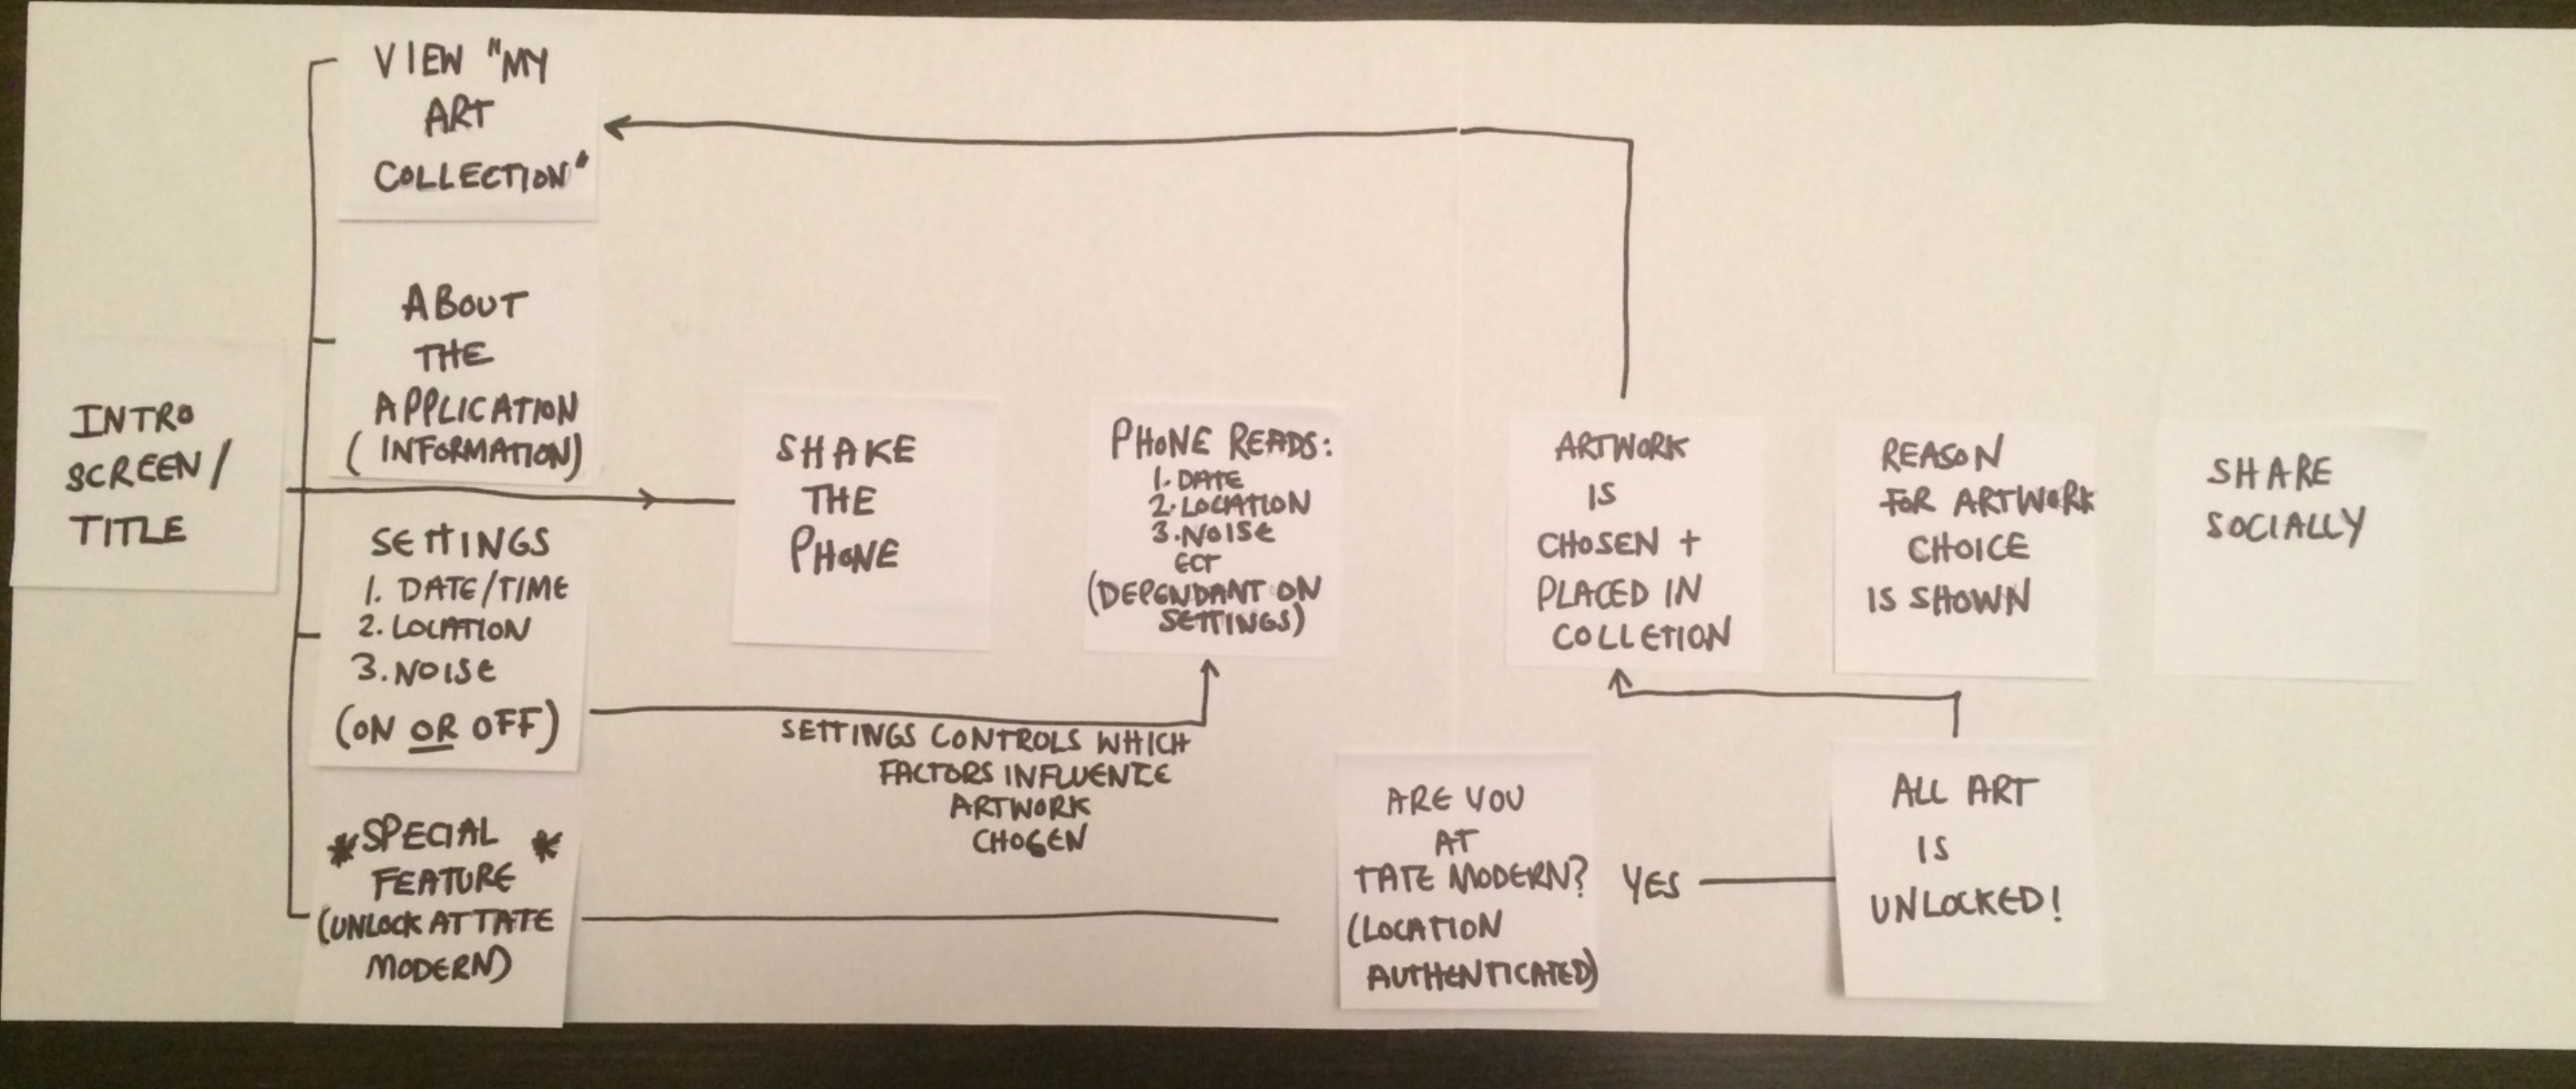 VIEW "MY
ART
COLLECTION"
ABOUT
THE
APPLICATION
(INFORMATION)
INTRO
SCREEN/
TITLE
SETTINGS
1. DATE/TIME
2. LOCATION
3. NOISE
(ON OR OFF)
*SPECIAL *
FEATURE
(UNLOCK AT TATE
MODERN)
SHAKE
THE
PHONE
PHONE READS:
1. DATE
2. LOCATION
3. NOISE
ECT
(DEPENDANT ON
SETTINGS)
SETTINGS CONTROLS WHICH
FACTORS INFLUENCE
ARTWORK
CHOSEN
ARTWORK
IS
CHOSEN +
PLACED IN
COLLETION
REASON
FOR ARTWORK
CHOICE
IS SHOWN
SHARE
SOCIALLY
ARE YOU
AT
TATE MODERN?
(LOCATION
AUTHENTICATED)
YES
ALL ART
IS
UNLOCKED!